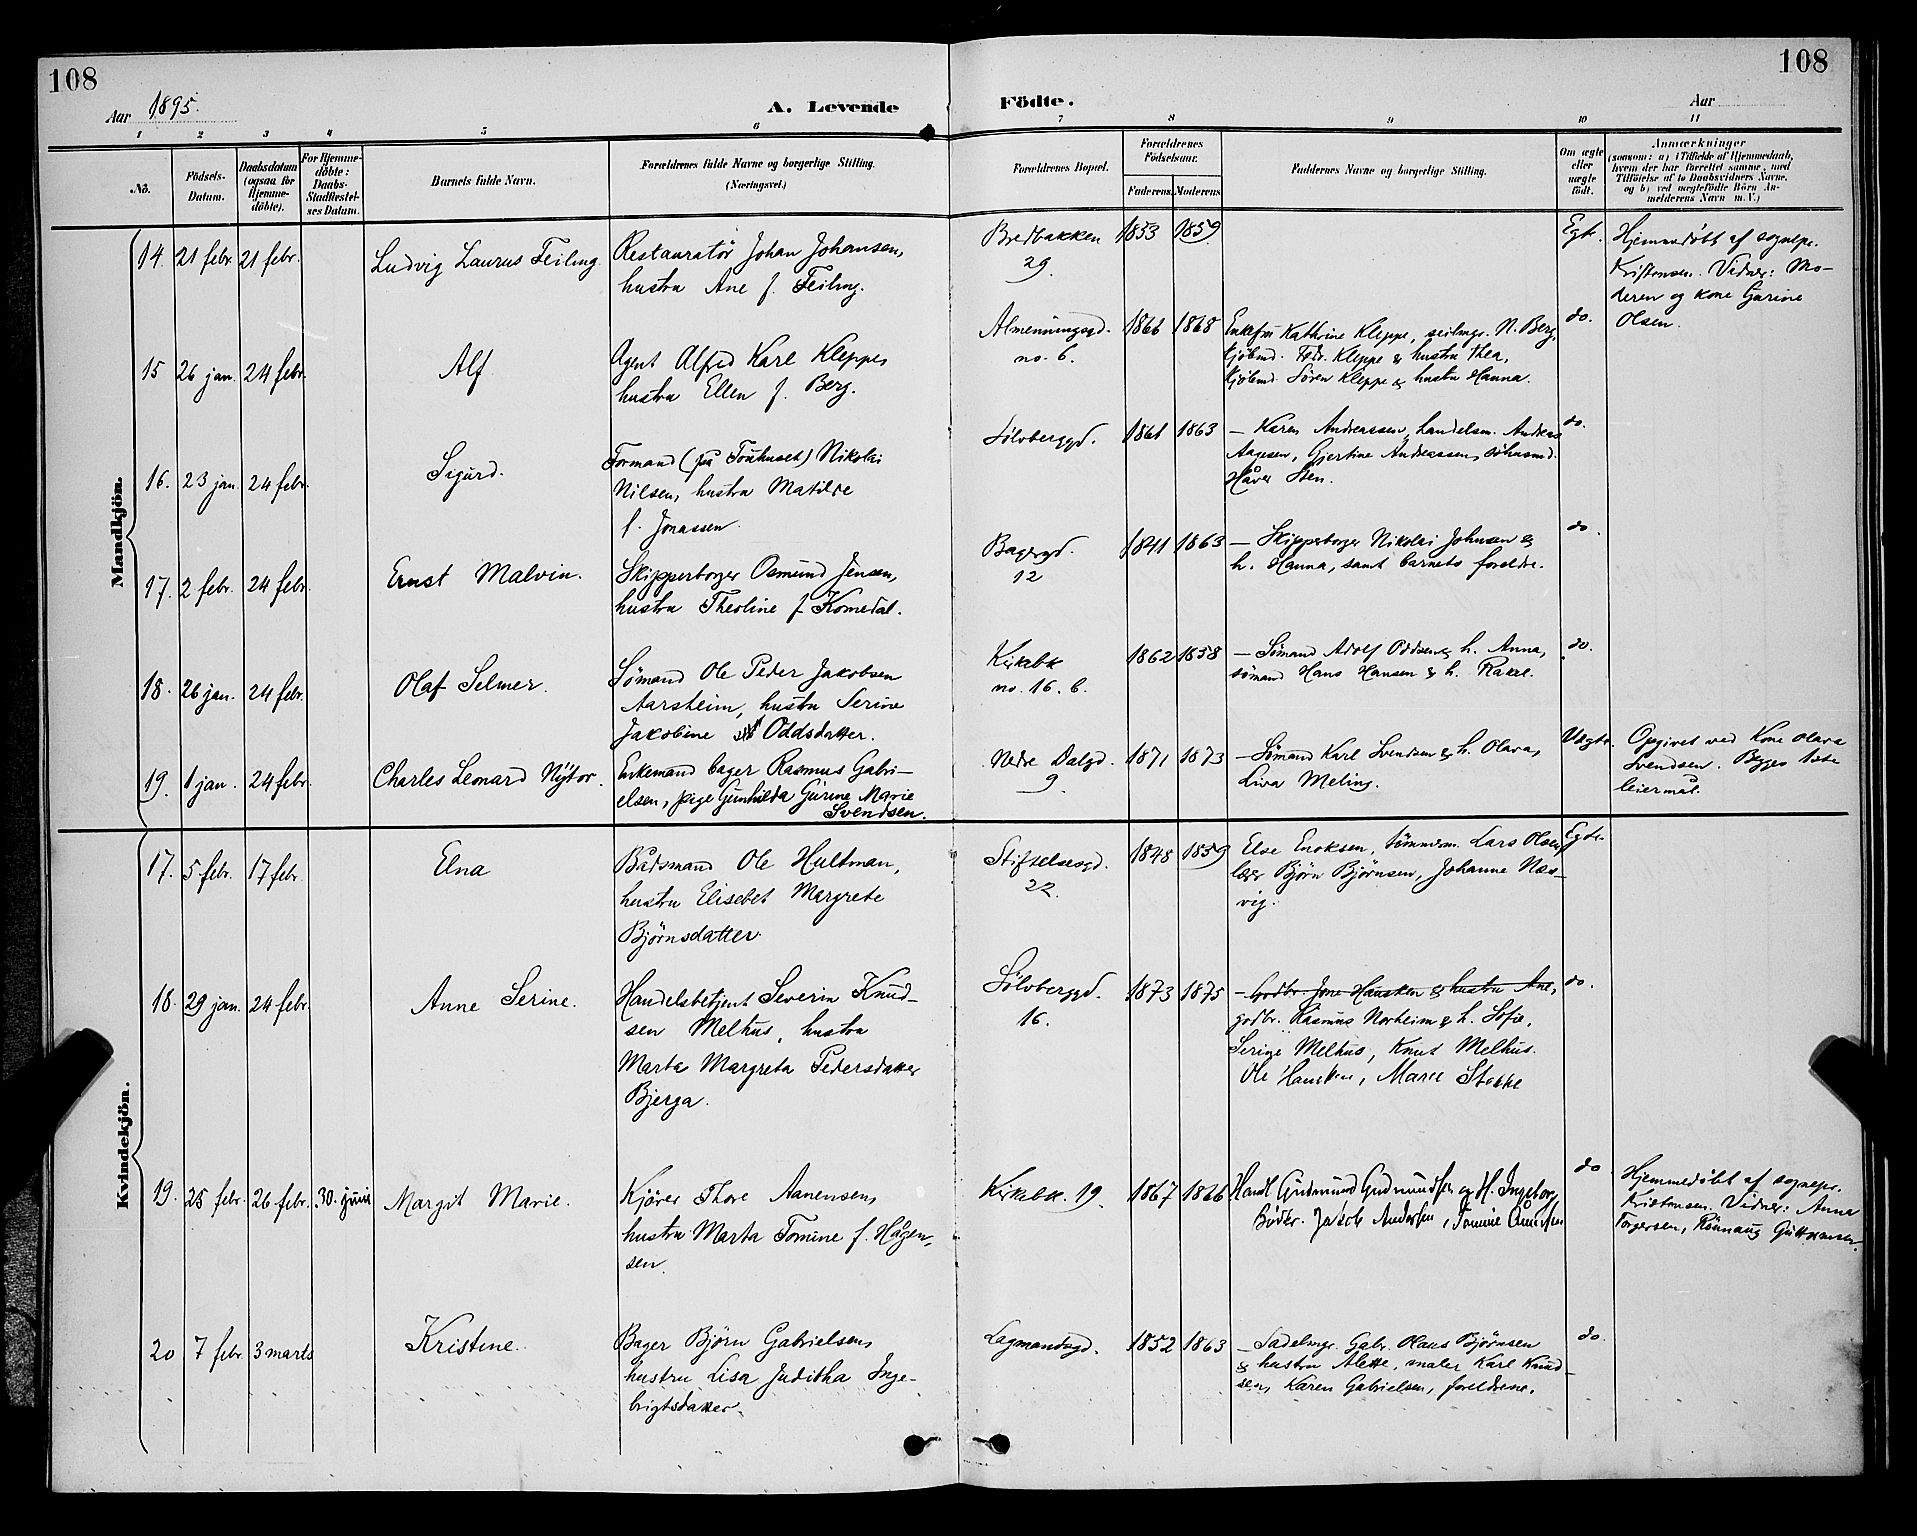 108
108
Aar 1895.
A. Levende Födte.
Aar
1 2 3 4 5 6 7 8 9 10 11
No.
Födsels-
Datum.
Daabsdatum
(ogsaa for
Hjemme-
döbte).
For Hjemme-
döbte:
Daabs-
Stadfæstel-
ses Datum.
Barnets fulde Navn.
Forældrenes fulde Navne og borgerlige Stilling.
(Næringsvei.)
Forældrenes Bopæl.
Forældrenes
Födselsaar.
Faderens. Moderens.
Faddernes Navne og borgerlige Stilling.
Om ægte
eller
uægte
födt.
Anmærkninger
(saasom: a) i Tilfælde af Hjemmedaab,
hvem der har forrettet samme, med
Tilföielse af to Daabsvidners Navne,
og b) ved uægtefödte Börn An-
melderens Navn m. V.)
Mandkjön.
14. 21 febr. 21 febr.
Ludvig Laurus Feiling
Restauratør Johan Johansen,
hustru Ane f. Feiling.
Bredbakken
29.
1853 1859.
Egt.
Hjemmedøbt af sognepr.
Kristensen. Vidner: Mo-
deren og kone Gurine
Olsen.
15 26 jan. 24 febr.
Alf
Agent Alfred Karl Kleppe,
hustru Ellen f. Berg.
Almenningsgd.
no. 6.
1866 1868
Enkefru Kathrine Kleppe, seilmgr. N. Berg,
kjøbmd. Fedr. Kleppe & hustru Thea,
kjøbmd. Søren Kleppe & hustru Hanna.
do.
16. 23 jan. 24 febr.
Sigurd.
Formand (på Touhuset) Nikolai
Nilsen, hustru Matilde
f. Jonassen.
Sølvberggd.
1861 1863
– Karen Andreassen, handelsm. Andreas
Aagesen, Gjertine Andreassen,
Håver Sten.
do.
17. 2 febr. 24 febr.
Ernst Malvin.
Skipperborger Osmund Jensen,
hustru Theoline f. Komedal.
Bagergd.
12
1841 1863
– Skipperborger Nikolai Johnsen &
h. Hanna, samt barnets foreldre.
do.
18. 26 jan. 24 febr.
Olaf Selmer.
Sømand Ole Peder Jakobsen
Aarsheim, hustru Serine
Jakobine Oddsdatter.
Kirkebk
no. 16. b.
1862 1858
– Sømand Adolf Oddsen & h. Anna,
sømand Hans Hansen & h. Rakel.
do.
19. 1 jan. 24 febr.
Charles Leonard Nytor.
Enkemand bager Rasmus Gabri-
elsen, pige Gunhilda Gurine Marie
Svendsen.
Nedre Dalgd.
9.
1871 1873
– Sømand Karl Svendsen & h. Olava,
Liva Meling.
Uegte.
Opgivet ved Kone Olava
Svendsen. Begges 1ste
leiermål.
Kvindekjön.
17. 5 febr. 17 febr.
Elna
Bådsmand Ole Hultman,
hustru Elisebet Margrete
Bjørnsdatter.
Stiftelsesgd.
22.
1848 1859
Else Enoksen, tømmerm. Lars Olsen,
læger Bjørn Bjørnsen, Johanne Næs-
vig.
Egte.
18. 29 jan. 24 febr.
Anne Serine.
Handelsbetjent Severin Knud-
sen Melhus, hustru
Marta Margreta Pedersdatter
Bjerga.
Sølvberggd.
16.
1873 1875
– Godbr. Jone Hausken & hustru Ane,
godbr. Rasmus Norheim & h. Sofie,
Serine Melhus, Knut Melhus.
Ole Hausken, Marie Stokke
do.
19. 25 febr. 26 febr. 30. juni
Margit Marie.
Kjører Thore Aanensen,
hustru Marta Tomine f. Hågen-
sen.
Kirkebk. 19.
1867 1866
Handl Gudmund Gudmundsen og H. Ingeborg,
Bødkr. Jakob Andersen, Tomine Aanensen
do
Hjemmedøbt af sognepr.
Kristensen. Vidner: Anna
Torgersen, Rønnaug Guttormsen.
20 7 febr. 3 marts
Kristine.
Bager Bjørn Gabrielsen,
hustru Lisa Juditha Inge-
brigtsdatter.
Lagmandsgd.
1852 1863
– Sadelmgr. Gabr. Olaus Bjørnsen
& hustru Alette, maler Karl Knud-
sen, Karen Gabrielsen, foreldrene.
do.